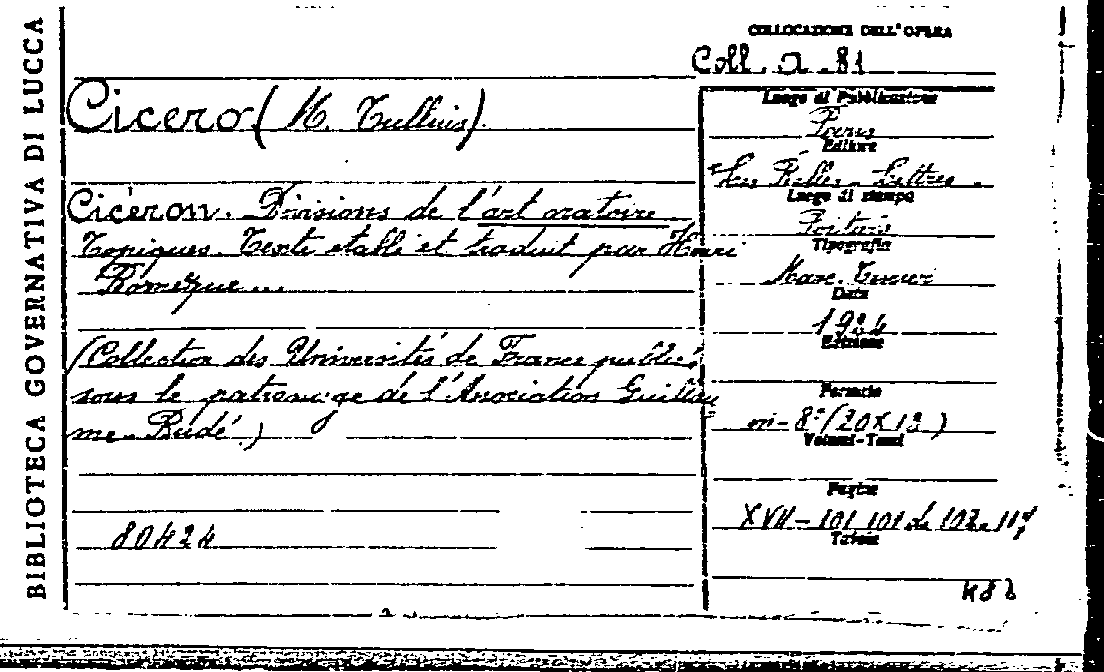 BIBLIOTECA GOVERNATIVA DI LUCCA
COLLOCAZIONE DELL'OPERA
Coll. a. 81
Cicero (M. Tullius)
Cicéron. Divisions de l'art oratoire
Topiques. Texte etabli et traduit par Henri
Bornecque...
(Collection des Universités de France publiée
sous le patronage de l'Association Guillau
me Budé.)
80424
Luogo di Pubblicazione
Paris
Editore
Les Belles-Lettres.
Luogo di stampa
Poitiers
Tipografia
Marc. Texier
Data
Edizione
Formato
in-8° (20x13)
Volumi-Tomi
Pagine
XVII - 101 101 da 102 a
Tavole